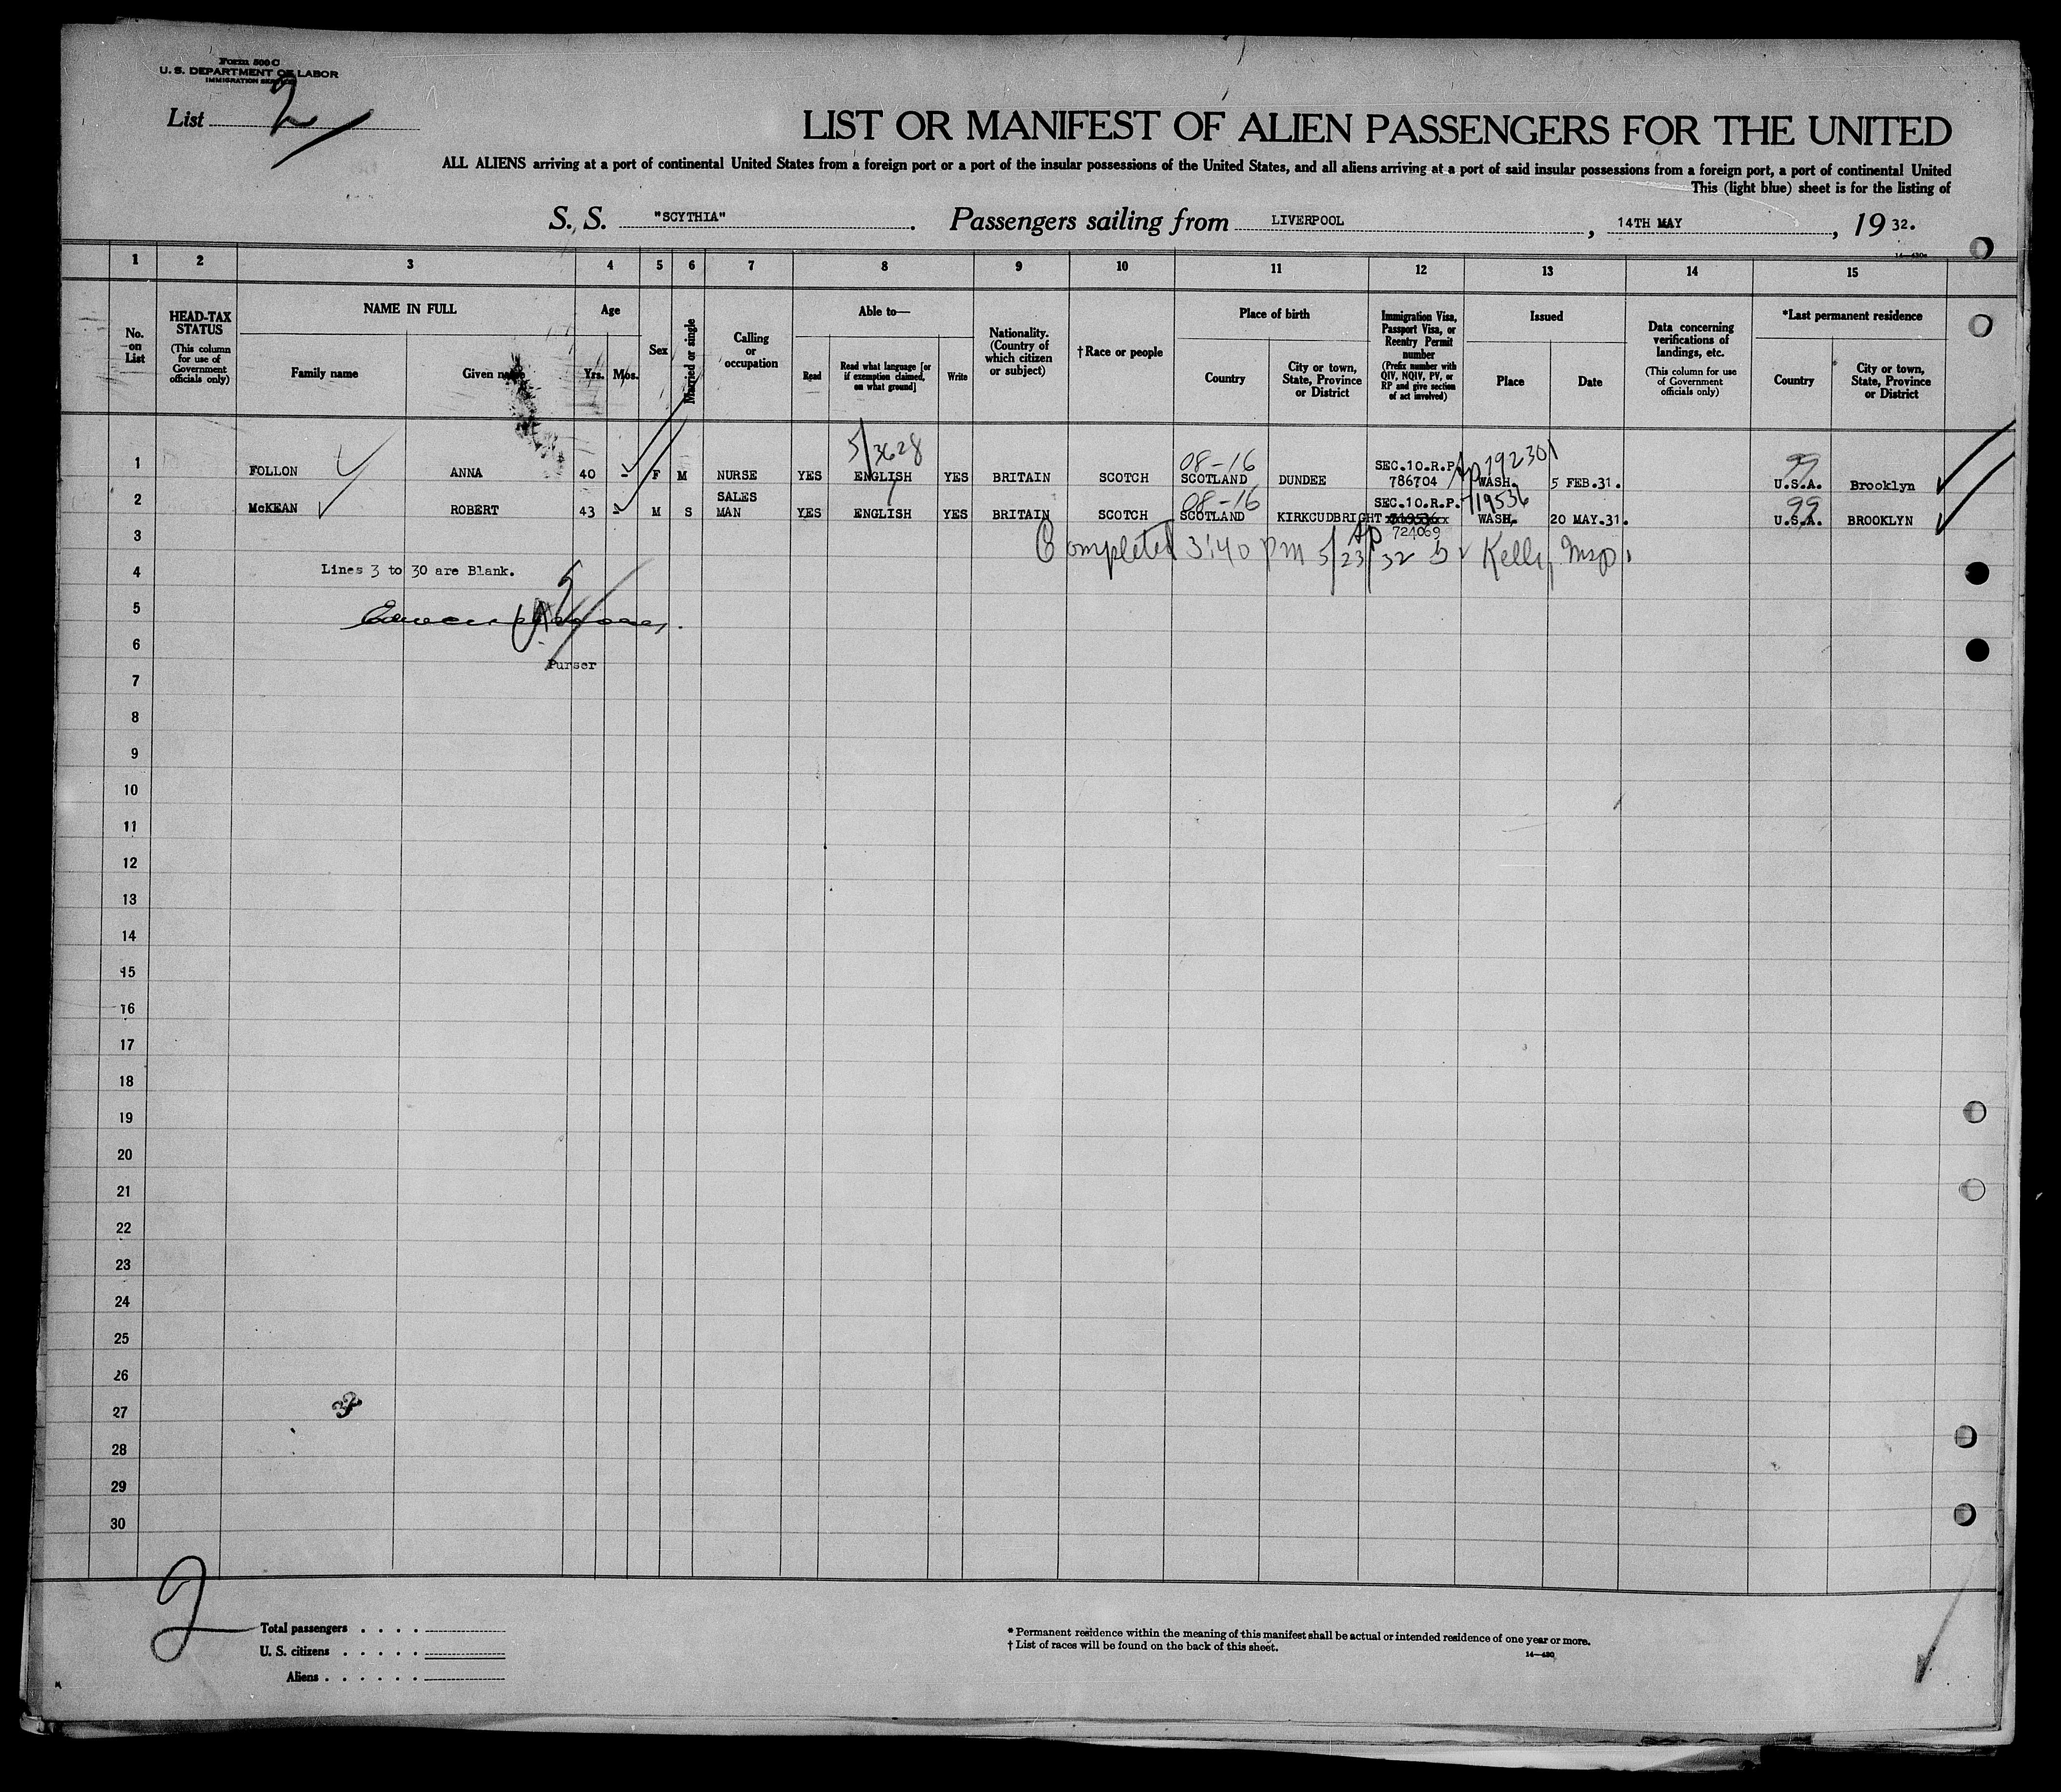 Form 500 C
U. S. DEPARTMENT OF LABOR
IMMIGRATION SERVICE
List 2
LIST OR MANIFEST OF ALIEN PASSENGERS FOR THE UNITED
ALL ALIENS arriving at a port of continental United States from a foreign port or a port of the insular possessions of the United States, and all aliens arriving at a port of said insular possessions from a foreign port, a port of continental United
This (light blue) sheet is for the listing of
S. S. "SCYTHIA". Passengers sailing from LIVERPOOL, 14TH MAY, 19 32.
1 2 3 4 5 6 7 8 9 10 11 12 13 14 15
No. on List
HEAD-TAX STATUS (This column for use of Government officials only)
NAME IN FULL
Family name
Given name
Age
Yrs.
Mos.
Sex
Married or single
Calling or occupation
Able to—
Read
Read what language [or if exemption claimed, on what ground]
Write
Nationality. (Country of which citizen or subject)
†Race or people
Place of birth
Country
City or town, State, Province or District
Immigration Visa, Passport Visa, or Reentry Permit number (Prefix number with QIV, NQIV, PV, or RP and give section of act involved)
Issued
Place
Date
Data concerning verifications of landings, etc. (This column for use of Government officials only)
*Last permanent residence
Country
City or town, State, Province or District
5/3628
08-16 SEC.10.R.P. Ap 792301 99
1 FOLLON ANNA 40 - F M NURSE YES ENGLISH YES BRITAIN SCOTCH SCOTLAND DUNDEE 786704 WASH. 5 FEB.31. U.S.A. Brooklyn
SALES 08-16 SEC.10.R.P. 719536 99
2 McKEAN ROBERT 43 - M S MAN YES ENGLISH YES BRITAIN SCOTCH SCOTLAND KIRKCUDBRIGHT WASH. 20 MAY.31. U.S.A. BROOKLYN
724069
3 Completed 3:40 pm 5/23/32 Kelly, Insp.
4 Lines 3 to 30 are Blank.
5
6 Purser
7
8
9
10
11
12
13
14
15
16
17
18
19
20
21
22
23
24
25
26
27
28
29
30
2
Total passengers
U. S. citizens
Aliens
* Permanent residence within the meaning of this manifest shall be actual or intended residence of one year or more.
† List of races will be found on the back of this sheet.
14—430